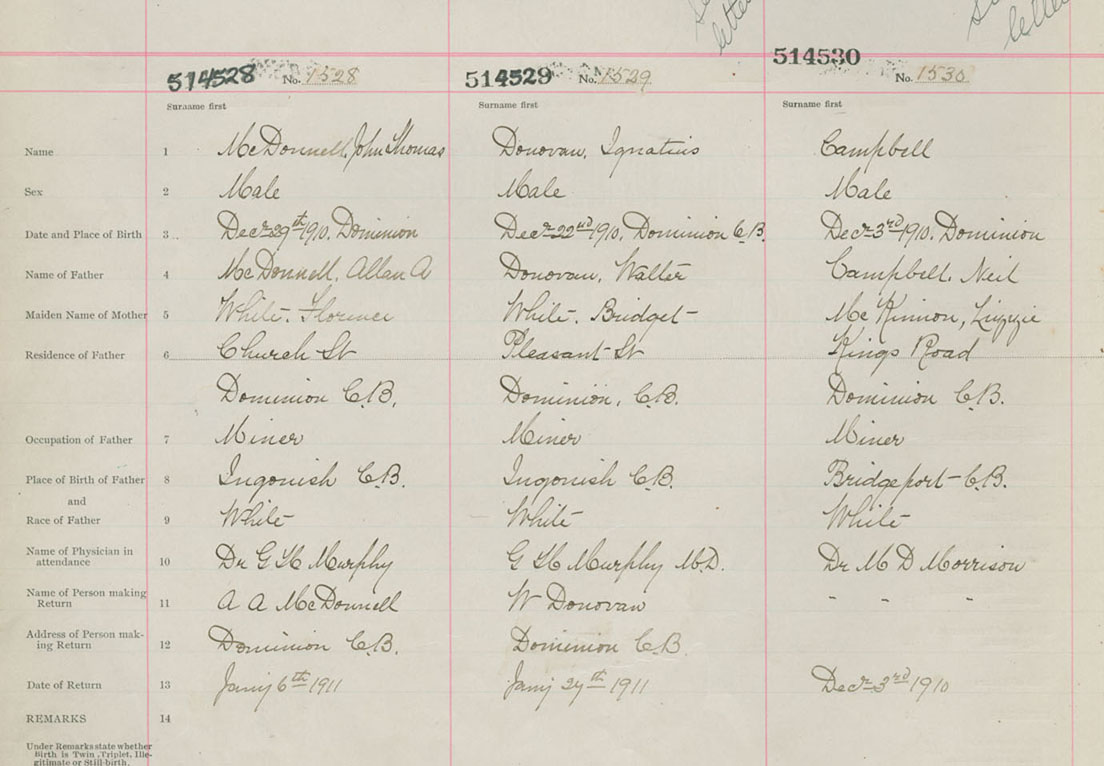 letter
letter
514528 No. 1528 514529 No. 1529 514530 No. 1530
Surname first Surname first Surname first
Name 1 McDonnell, John Thomas Donovan, Ignatius Campbell
Sex 2 Male Male Male
Date and Place of Birth 3 Decr 29th 1910. Dominion Decr 22nd 1910. Dominion C.B. Decr 3rd 1910. Dominion
Name of Father 4 McDonnell, Allan A Donovan, Walter Campbell, Neil
Maiden Name of Mother 5 White. Florence White. Bridget McKinnon, Lizzie
Residence of Father 6 Church St Pleasant St Kings Road
Dominion C.B. Dominion, C.B. Dominion C.B.
Occupation of Father 7 Miner Miner Miner
Place of Birth of Father 8 Ingonish C.B. Ingonish C.B. Bridgeport C.B.
and
Race of Father 9 White White White
Name of Physician in
attendance 10 Dr G H Murphy G H Murphy M.D. Dr M D Morrison
Name of Person making
Return 11 A A McDonnell W Donovan " " "
Address of Person mak-
ing Return 12 Dominion C.B. Dominion C.B.
Date of Return 13 Jany 6th 1911 Jany 27th 1911 Decr 3rd 1910
REMARKS 14
Under Remarks state whether
Birth is Twin, Triplet, Ille-
gitimate or Still-birth.